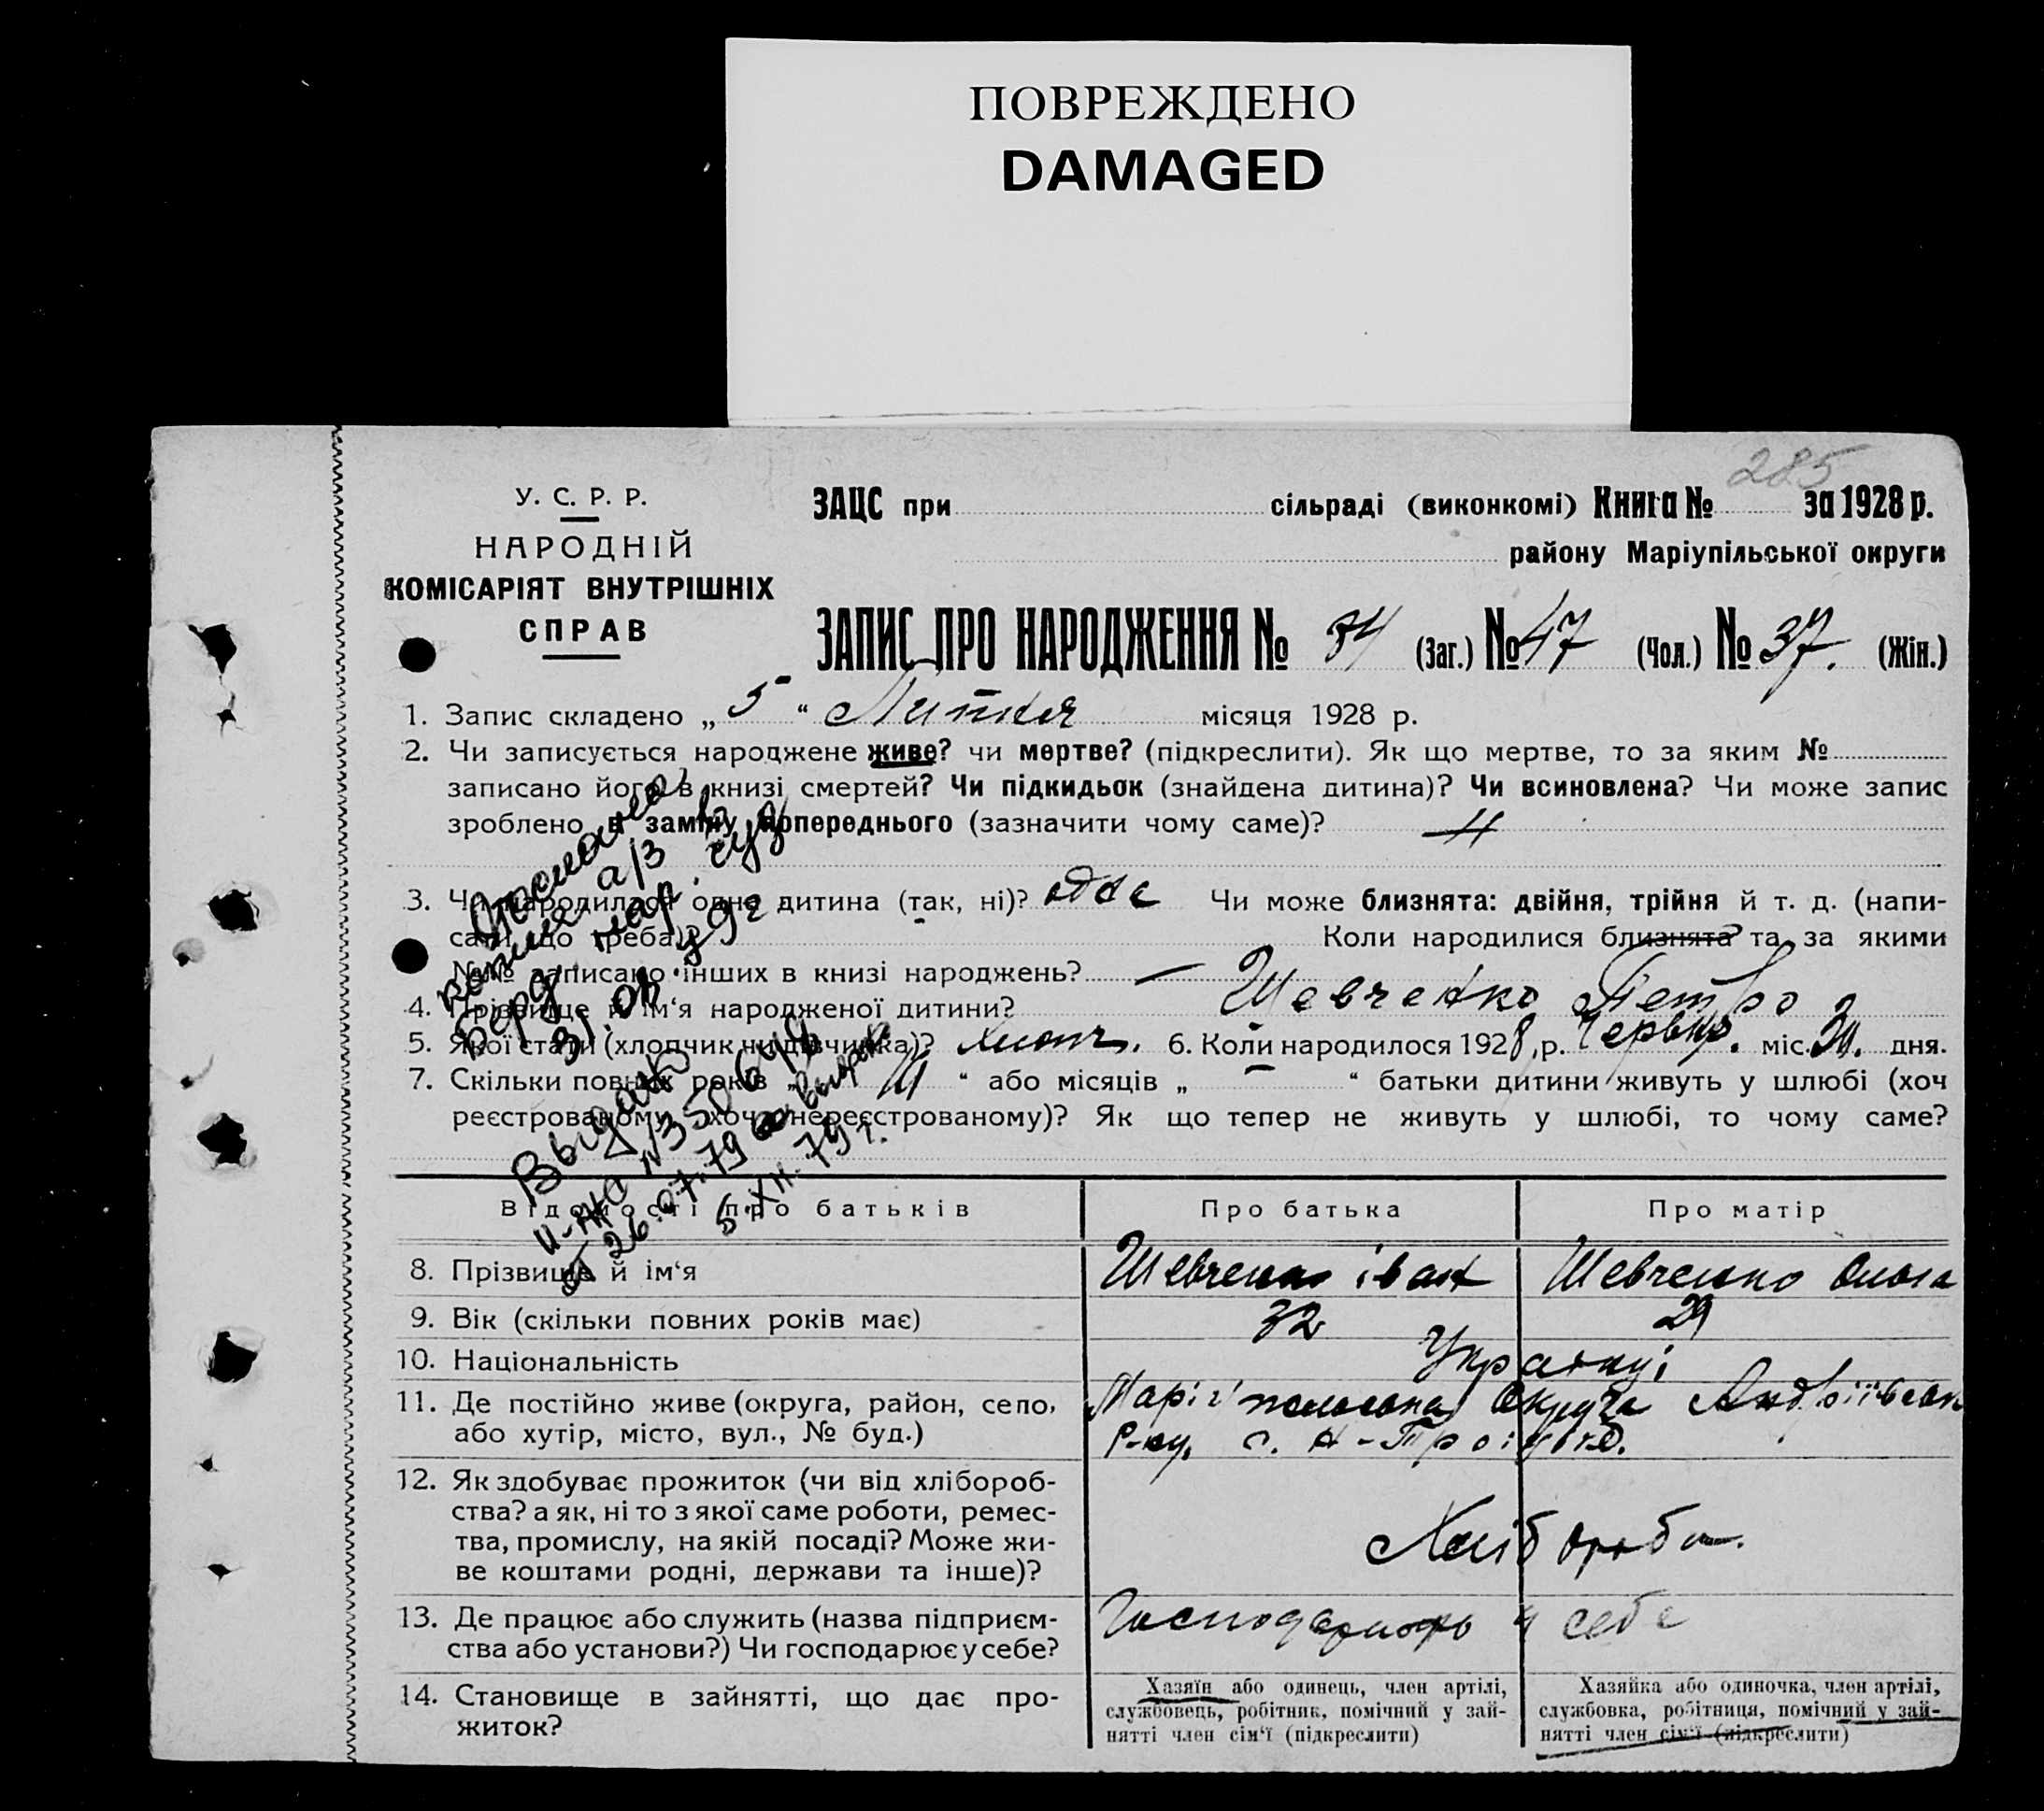 ПОВРЕЖДЕНО
DAMAGED
285
У. С. Р. Р.
НАРОДНІЙ
КОМІСАРІЯТ ВНУТРІШНІХ
СПРАВ
ЗАЦС при сільраді (виконкомі) Книга № за 1928 р.
району Маріупільської округи
ЗАПИС ПРО НАРОДЖЕННЯ № 84 (Заг.) № 47 (Чол.) № 37. (Жін.)
1. Запис складено „ 5 “ Липня місяця 1928 р.
2. Чи записується народжене живе? чи мертве? (підкреслити). Як що мертве, то за яким №
записано його в книзі смертей? Чи підкидьок (знайдена дитина)? Чи всиновлена? Чи може запис
зроблено в заміну попереднього (зазначити чому саме)?
3. Чи народилася одна дитина (так, ні)? одна Чи може близнята: двійня, трійня й т. д. (напи-
сати, що треба)? Коли народилися близнята та за якими
№№ записано інших в книзі народжень? —
4. Прізвище й ім‘я народженої дитини? Шевченко Петро
5. Якої стати (хлопчик чи дівчинка)? хлопч. 6. Коли народилося 1928 р. Червня. міс. 30. дня.
7. Скільки повних років „ “ або місяців „ — “ батьки дитини живуть у шлюбі (хоч
реєстрованому, хоч нереєстрованому)? Як що тепер не живуть у шлюбі, то чому саме?
Отослана
копия а/з в
Берд. нар. суд
31.08 79 г
Выдано
II-ЖС №350648
от 26.07.79
5.XII.79 г.
Відомості про батьків
Про батька
Про матір
8. Прізвище й ім‘я
Шевченко іван
Шевченко Ольга
9. Вік (скільки повних років має)
32
29
10. Національність
Українці
11. Де постійно живе (округа, район, село,
або хутір, місто, вул., № буд.)
Округа Андріївськ
Р-ну, с. Н-Троіцьк.
12. Як здобуває прожиток (чи від хлібороб-
ства? а як, ні то з якої саме роботи, ремес-
тва, промислу, на якій посаді? Може жи-
ве коштами родні, держави та інше)?
Хлібороби.
13. Де працює або служить (назва підприєм-
ства або установи?) Чи господарює у себе?
у себе
14. Становище в зайнятті, що дає про-
житок?
Хазяїн або одинець, член артілі,
службовець, робітник, помічний у зай-
нятті член сім‘ї (підкреслити)
Хазяйка або одиночка, член артілі,
службовка, робітниця, помічний у зай-
нятті член сім‘ї (підкреслити)